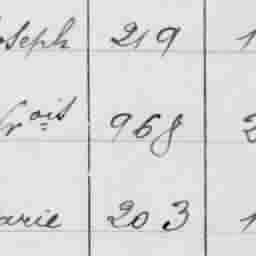 oseph 219 1
frois 968 2
arie 203 1